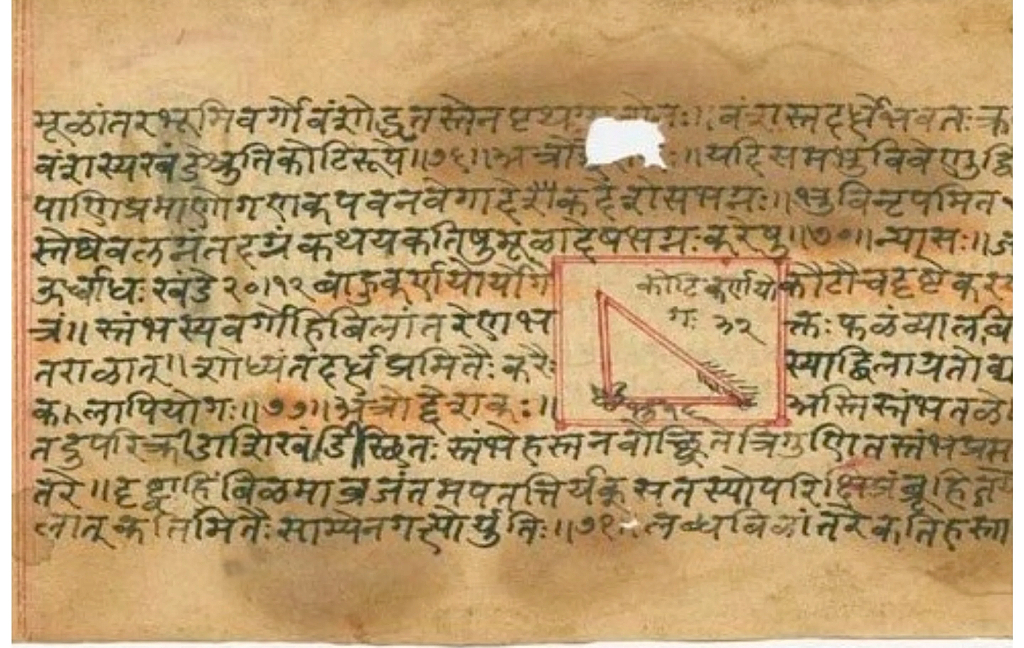 मूळांतरभूमिवर्गो वंशोद्धृतस्तेन पृथ ः॥ वंशस्तदर्धे भवतः क्र
वंशस्यखंडे श्रुतिकोटिरूपे॥७६॥अत्रो ः॥यदि समभुवि वेणुर्द्वि
पाणिप्रमाणो गणक पवनवेगादेकदेशे सभग्नः॥भुवि नृपमित
स्तेष्वेव लग्नं तदग्रं कथय कतिषु मूळादेष भग्नः करेषु॥७०॥न्यासः॥
ऊर्ध्वाधः खंडे २०।१२ बाहुकर्णयोर्योगे कोटौ च दृष्टे करस
कोटिकर्णयो
गः ३२
१६
त्रं॥ स्तंभस्य वर्गोहिबिलांतरेण भ क्तः फळं व्यालबि
तराळात्॥शोध्यं तदर्धप्रमितैः करैः स्याद्बिलाग्रतो व्या
कलापियोगः॥७७॥अत्रोद्देशकः॥ अस्ति स्तंभतळे
तदुपरि क्रीडाशिखंडी स्थितः स्तंभे हस्तनवोच्छ्रिते त्रिगुणितस्तंभप्रमा
तरे॥दृष्ट्वाहिं बिळमाव्रजंतमपतत्तिर्यक् स तस्योपरि क्षिप्रं ब्रूहि तयो
लात् कतिमितैः साम्येन गत्योर्युतिः॥७१ लब्धबिळांतरे कतिहस्ता